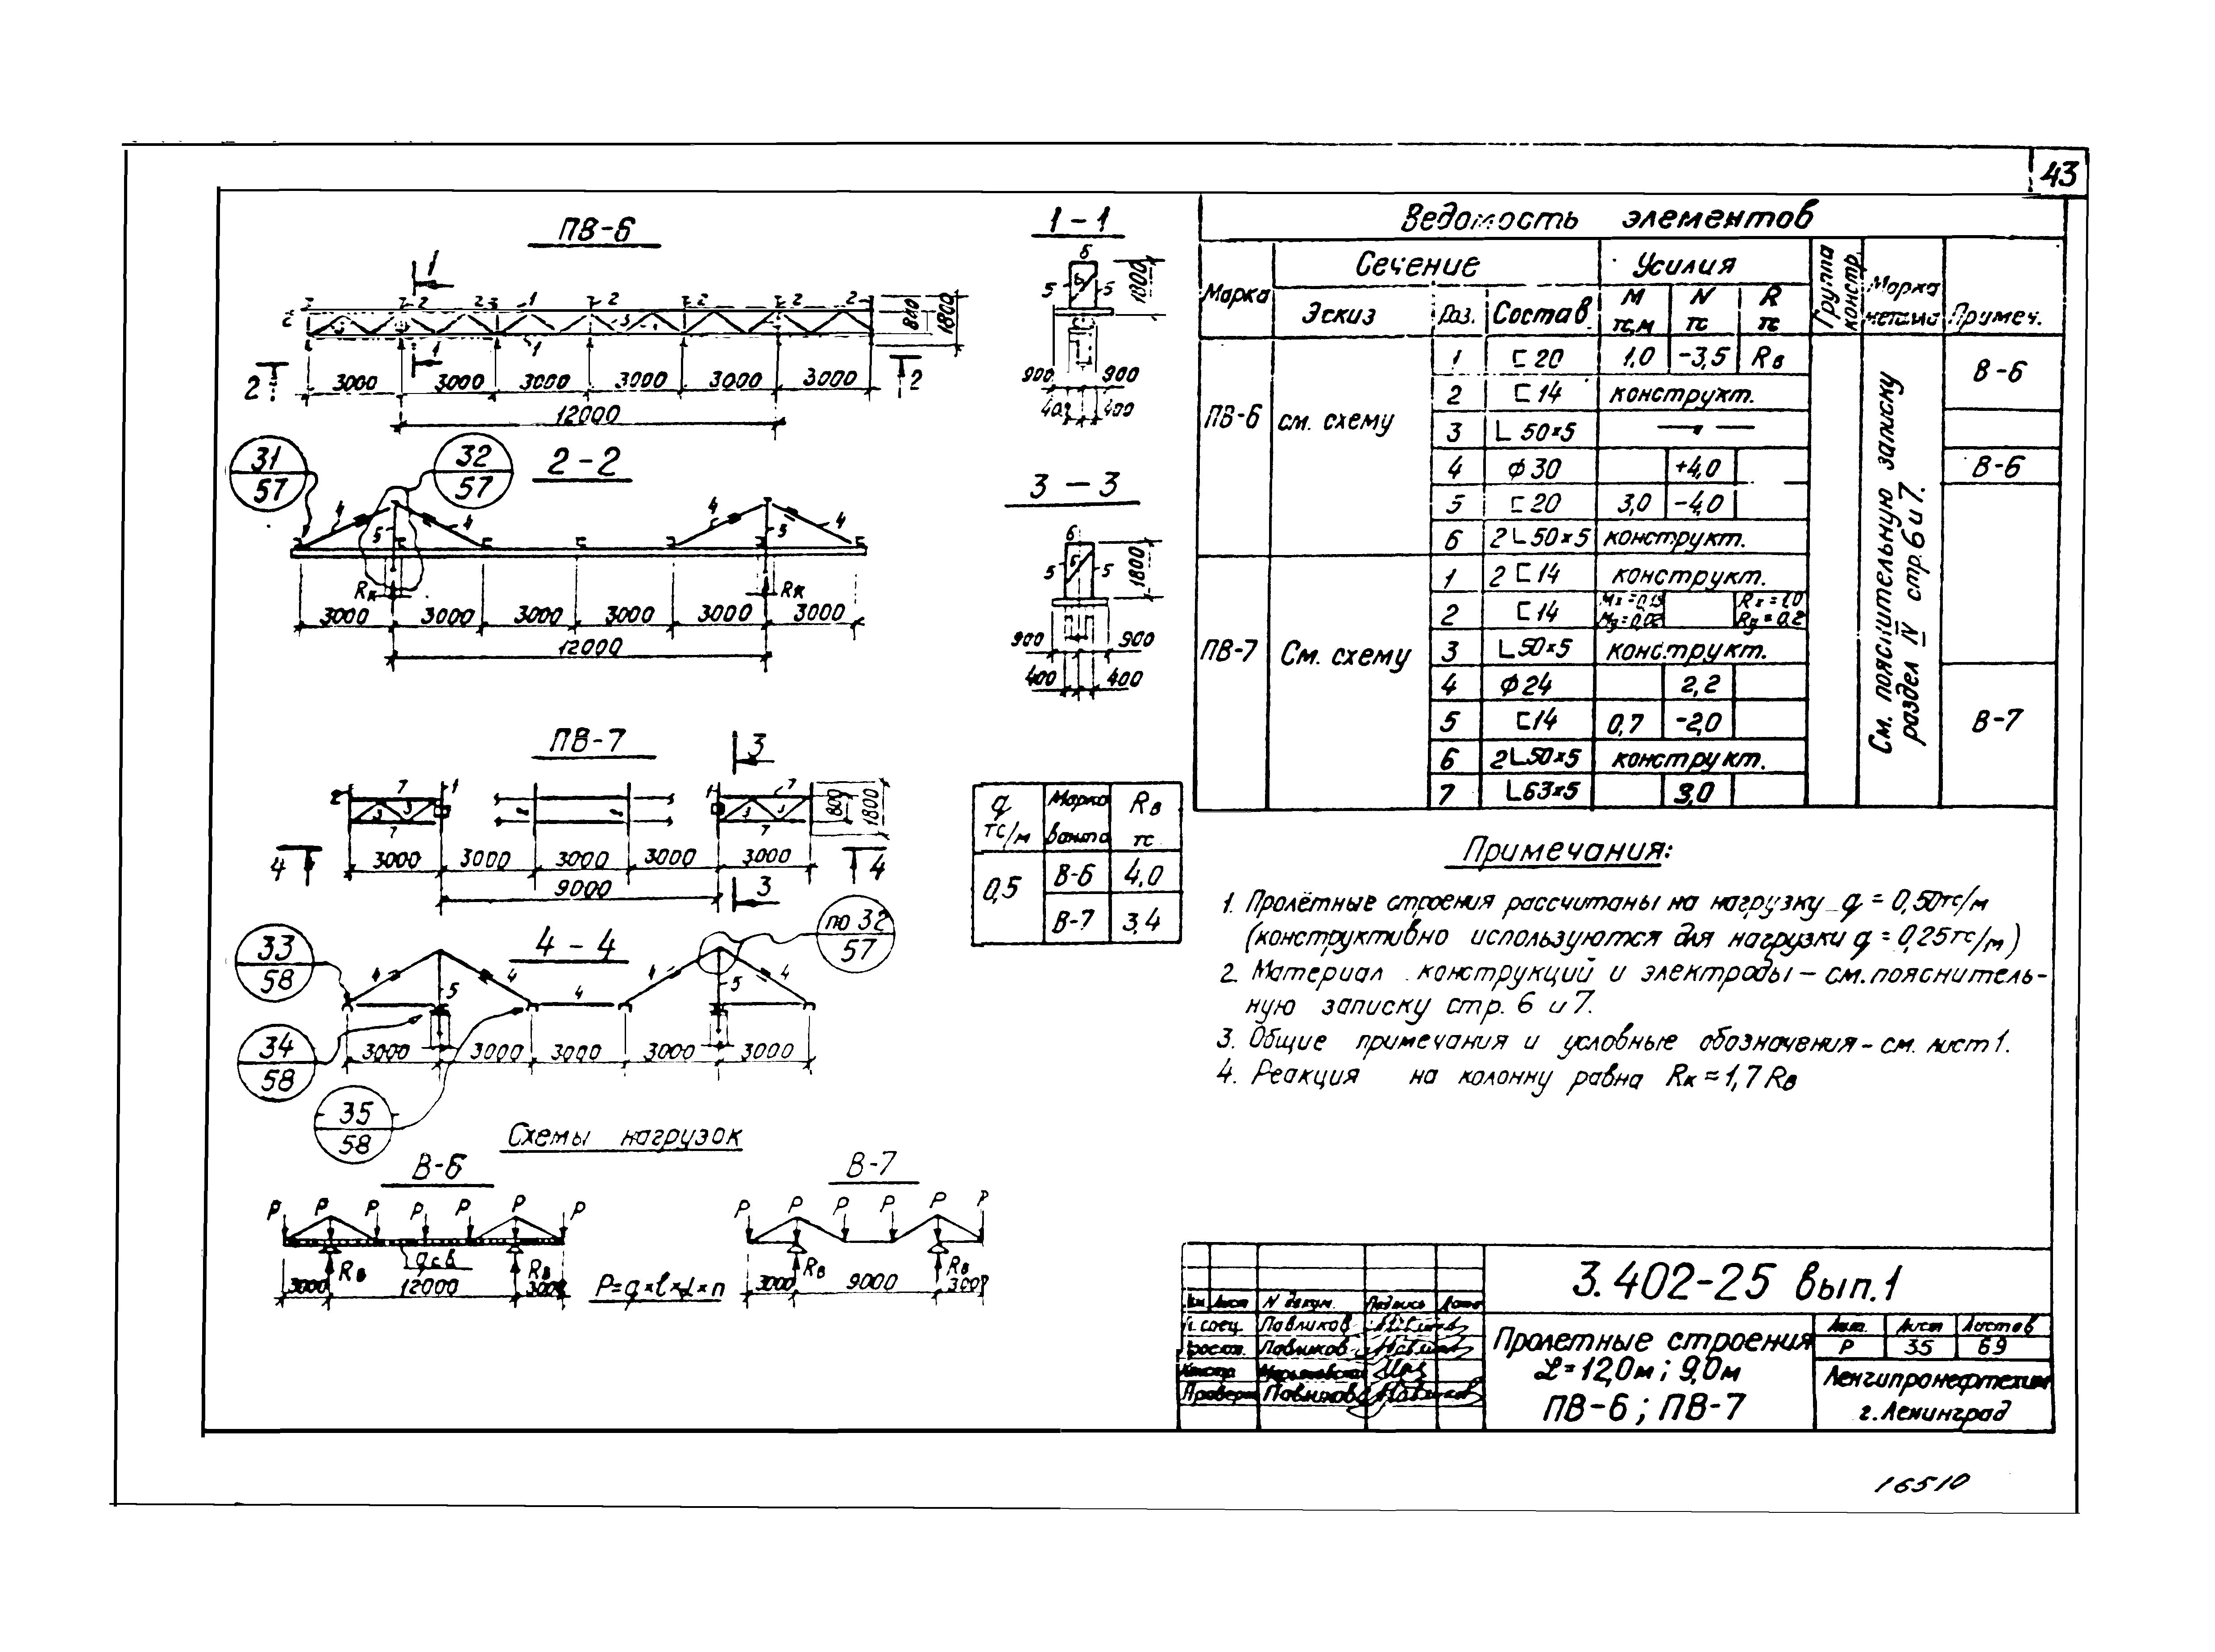 43
ПВ-6
1
2 2 1 2 2 2 2
3
1 1
800
1800
2 2
3000 3000 3000 3000 3000 3000
12000
1 – 1
6
5 6 5
1800
900 900
400
31
57
32
57
2 – 2
4 4 4 4
5 5
Rк Rк
3000 3000 3000 3000 3000 3000
12000
3 – 3
6
5 6 5
1800
900 900
400 400
ПВ-7
3
2 7 1 1 7
3 3 3 3
7 7
800
1800
4 4
3000 3000 3000 3000 3000
9000
3
33
58
4 – 4
по 32
57
4 4 4 4 4
5 5
34
58
3000 3000 3000 3000 3000
35
58
Схемы нагрузок
В-6
P P P P P P P
qсв
Rв Rв
3000 12000 3000
P=q×l×α×n
В-7
P P P P P P
Rв Rв
3000 9000 3000
q тс/м Марка ванта Rв тс
0,5 В-6 4,0
В-7 3,4
Ведомость элементов
Марка Сечение Усилия Группа констр. Марка металла Примеч.
Эскиз Поз. Состав М тс.м N тс R тс
ПВ-6 см. схему 1 ⊏ 20 1,0 -3,5 Rв В-6
2 ⊏ 14 конструкт.
3 L 50×5 — " —
4 ϕ 30 +4,0 В-6
5 ⊏ 20 3,0 -4,0
6 2 L 50×5 конструкт.
ПВ-7 См. схему 1 2 ⊏ 14 конструкт.
2 ⊏ 14 Rx = 1,0 Ry = 0,2
3 L 50×5 конструкт.
4 ϕ 24 2,2
5 ⊏ 14 0,7 -2,0 В-7
6 2 L 50×5 конструкт.
7 L 63×5 3,0
См. пояснительную записку
раздел IV стр. 6 и 7.
Примечания:
1. Пролётные строения рассчитаны на нагрузку q = 0,50тс/м
(конструктивно используются для нагрузки q = 0,25тс/м)
2. Материал конструкций и электроды – см. пояснитель-
ную записку стр. 6 и 7.
3. Общие примечания и условные обозначения – см. лист 1.
4. Реакция на колонну равна Rк = 1,7 Rв
3.402-25 вып.1
Лист N докум. Подпись Дата
Гл. спец. Павликов
Павликов
Проверил Павликов
Пролетные строения
L = 12,0м ; 9,0м
ПВ-6 ; ПВ-7
Лит. Лист Листов
Р 35 69
Ленгипронефтехим
г. Ленинград
16510